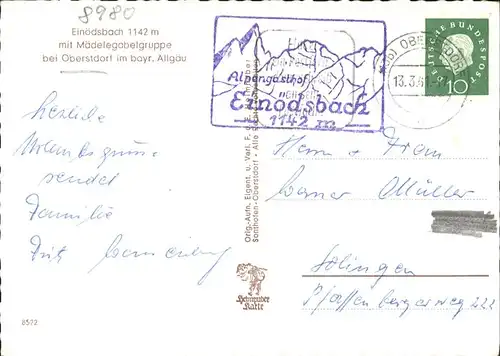 8980
Einödsbach 1142 m
mit Mädelegabelgruppe
bei Oberstdorf im bayr. Allgäu
Alpengasthof
Einödsbach
1142 m
OBERSTDORF
13.3.61
DEUTSCHE BUNDESPOST
10
Herzliche
Urlaubsgrüsse
sendet
Familie
Fritz
Herrn + Frau
Werner Müller
Solingen
Pfaffenbergerweg 222
Orig.-Aufn. Eigent. u. Verl. F. u. E.
Sonthofen-Oberstdorf - Alle
Schwader
Karte
8522